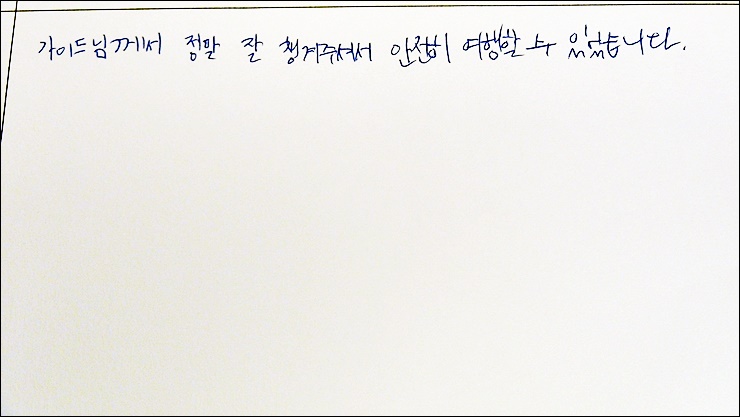 가이드님께서 정말 잘 챙겨주셔서 안전히 여행할 수 있었습니다.